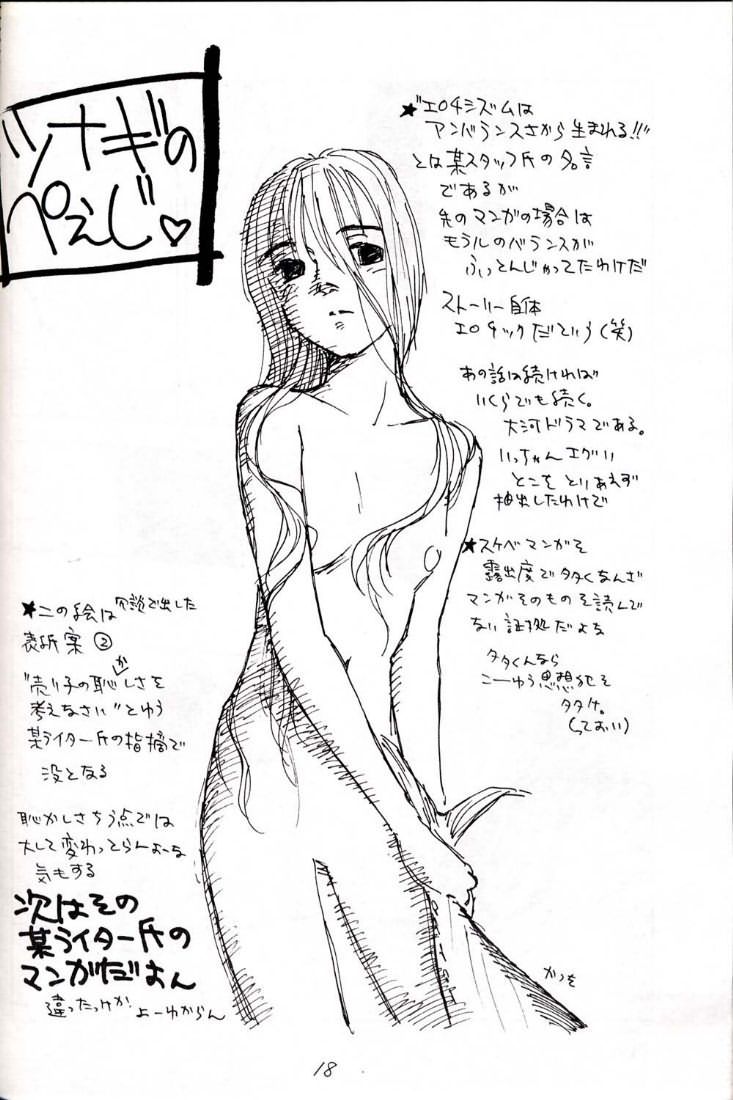 ツナギの
ぺぇじ♡
★"エロチシズムは
アンバランスさから生まれる!!"
とは某スタッフ氏の名言
であるが
先のマンガの場合は
モラルのバランスが
ふっとんじゃってたわけだ
ストーリー自体
エロチックだという(笑)
あの話は続ければ
いくらでも続く。
大河ドラマである。
いっちゃんエグい
とこをとりあえず
抽出したわけで
★スケベマンガを
露出度でタタくなんざ
マンガそのものを読んで
ない証拠だよな
タタくんなら
こーゆう思想犯を
タタけ。
(っておい)
★この絵は冗談で出した
表紙案②
"売り子の恥かしさを
考えなさい"とゆう
某ライター氏の指摘で
没となる
恥かしさちう点では
大して変わってらんよーな
気もする
次はその
某ライター氏の
マンガだよん
違ったっけか よーわからん
かつを
18